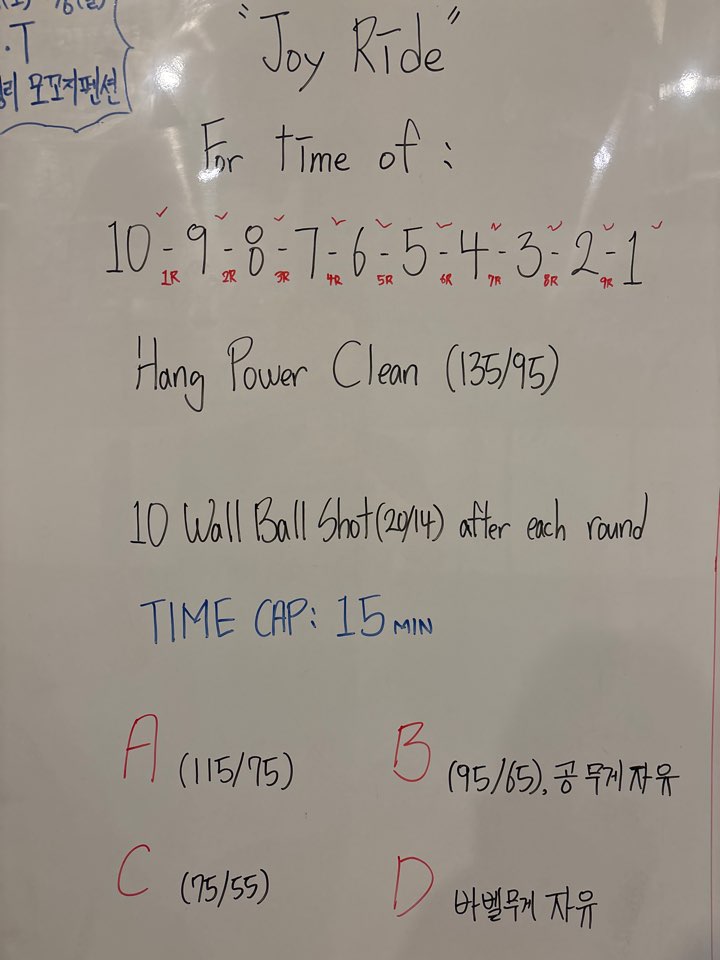 T
모꼬지펜션
"Joy Ride"
For time of :
10 - 9 - 8 - 7 - 6 - 5 - 4 - 3 - 2 - 1
1R 2R 3R 4R 5R 6R 7R 8R 9R
Hang Power Clean (135/95)
10 Wall Ball Shot (20/14) after each round
TIME CAP: 15 MIN
A (115/75) B (95/65), 공 무게 자유
C (75/55) D 바벨무게 자유